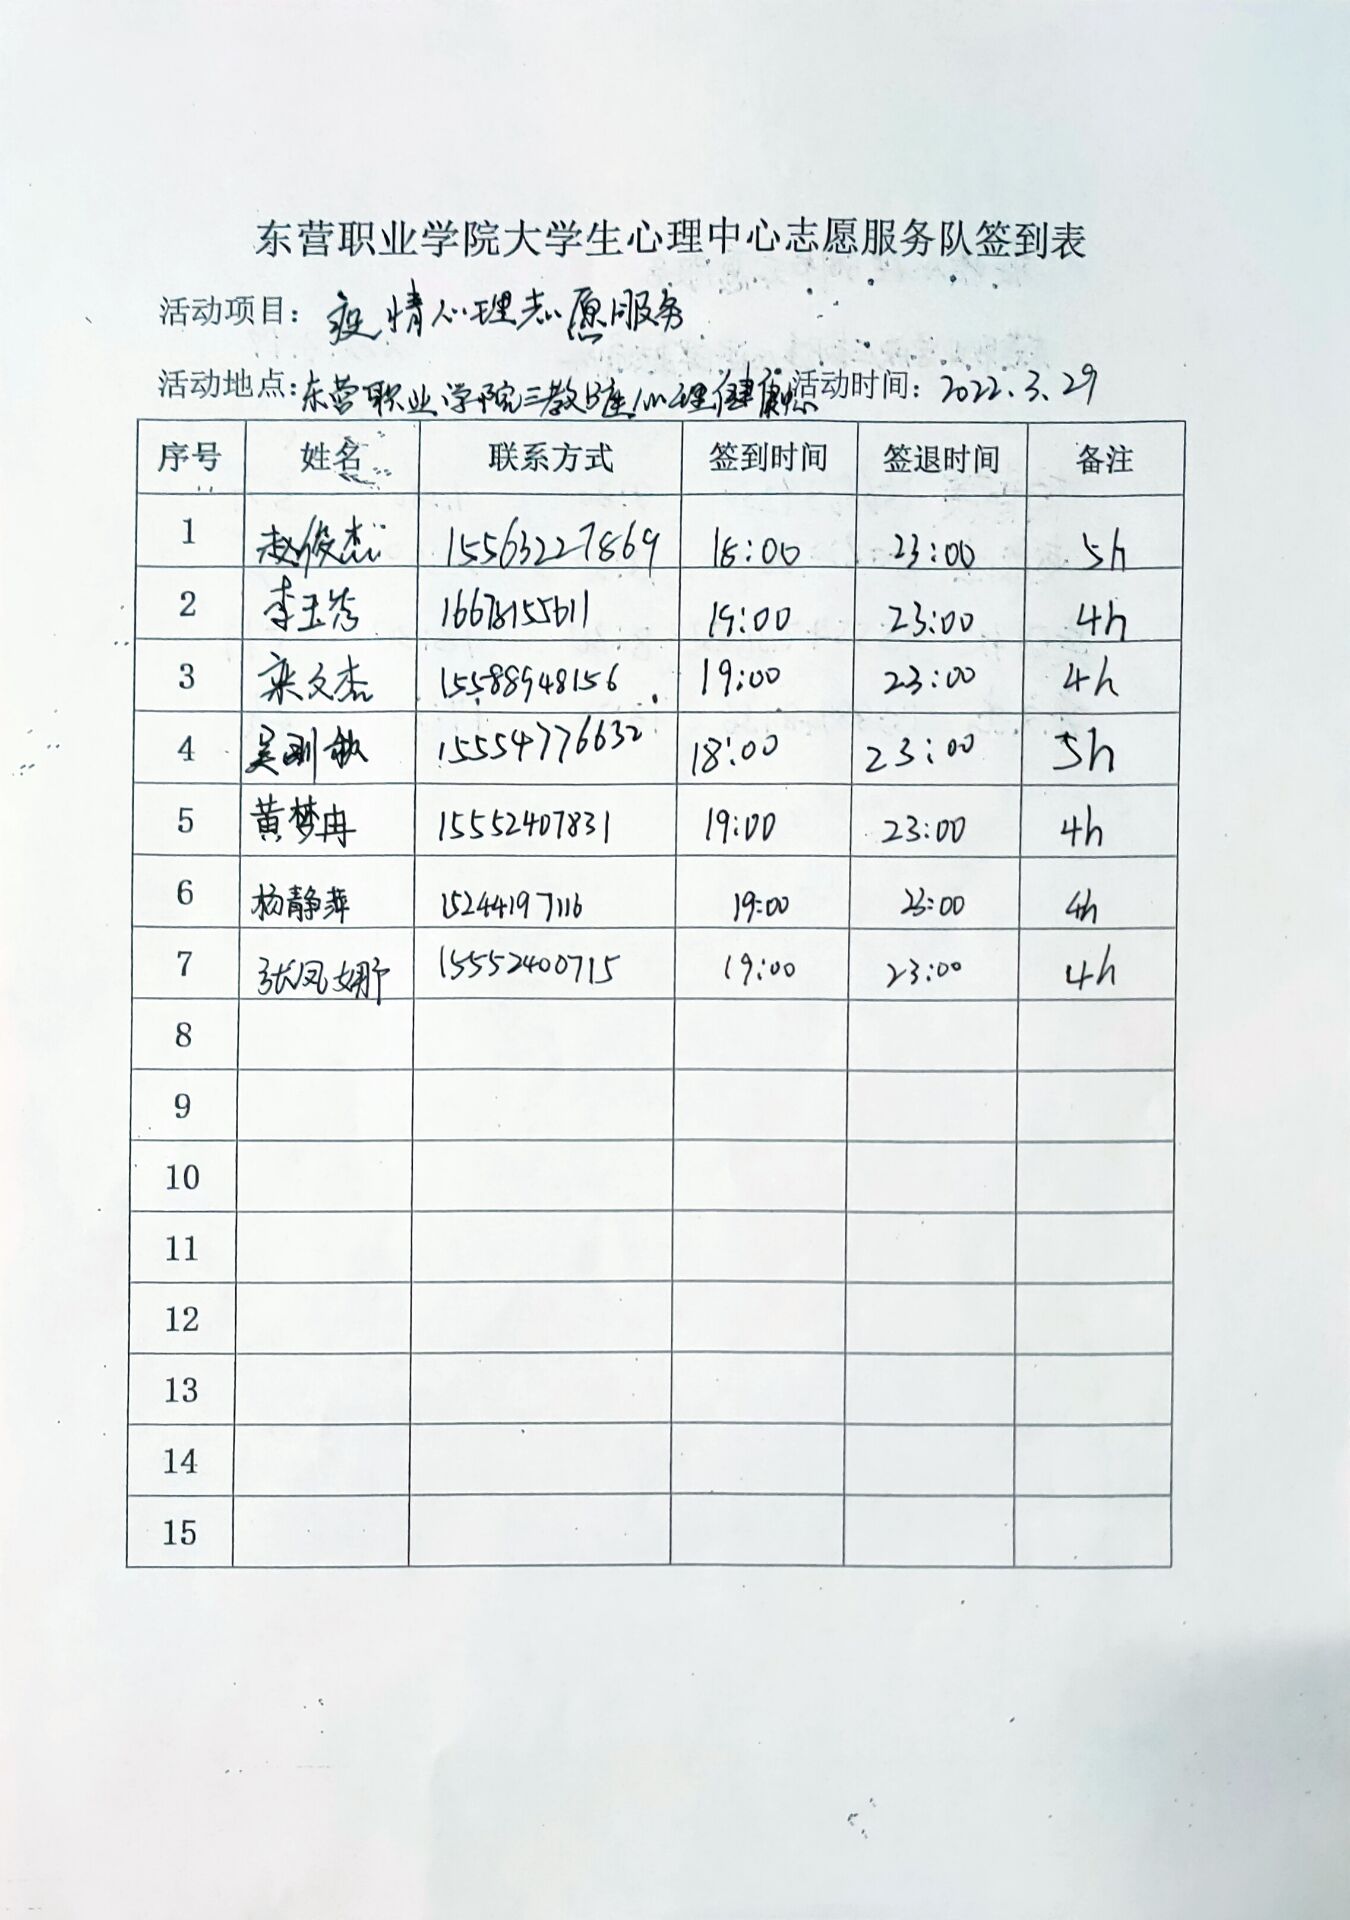 东营职业学院大学生心理中心志愿服务队签到表
活动项目：疫情心理志愿服务
活动地点：东营职业学院三教B座心理健康 活动时间：2022.3.29
序号 姓名 联系方式 签到时间 签退时间 备注
1 赵俊杰 15563227869 18:00 23:00 5h
2 李玉秀 16678155611 19:00 23:00 4h
3 栾文杰 15588948156 19:00 23:00 4h
4 吴刚 15554776632 18:00 23:00 5h
5 黄梦冉 15552407831 19:00 23:00 4h
6 杨静萍 15244197116 19:00 23:00 4h
7 张凤娜 15552400715 19:00 23:00 4h
8
9
10
11
12
13
14
15